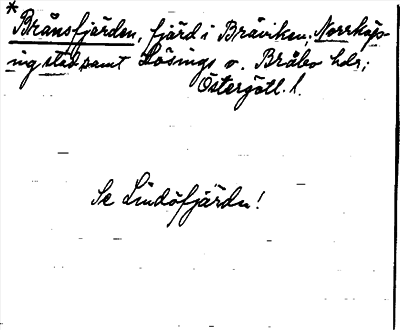 * Bränsfjärden, fjärd i Bråviken, Norrköp-
ing stad samt Lösings o. Bråbo hdr;
Östergötl. l.
Se Lindöfjärden!